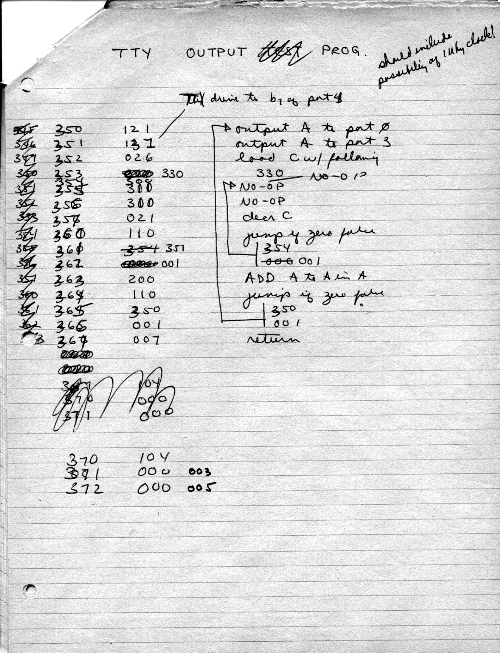 TTY OUTPUT PROG.
should include possibility of 1 Mhz clock!
TTY drive to b7 of port
350 121 output A to port 0
351 137 output A to port 3
352 026 load C w/ following
353 330 330 NO-OP
355 300 NO-OP
356 300 NO-OP
357 021 decr C
360 110 jump if zero false
361 354 351 354
262 001 000 001
263 200 ADD A to A in A
264 110 jump if zero false
365 350 350
366 001 001
367 007 return
367 104
370 000
371 000
370 104
371 000 003
372 000 005